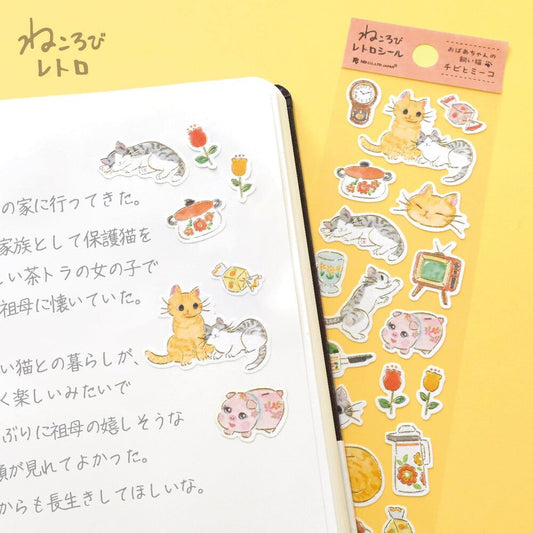 ねころび
レトロ
ねころび
レトロシール
おばあちゃんの
飼い猫
チビとミーコ
の家に行ってきた。
家族として保護猫を
しい茶トラの女の子で
祖母に懐いていた。
い猫との暮らしが、
く楽しいみたいで
ぶりに祖母の嬉しそうな
顔が見れてよかった。
からも長生きしてほしいな。